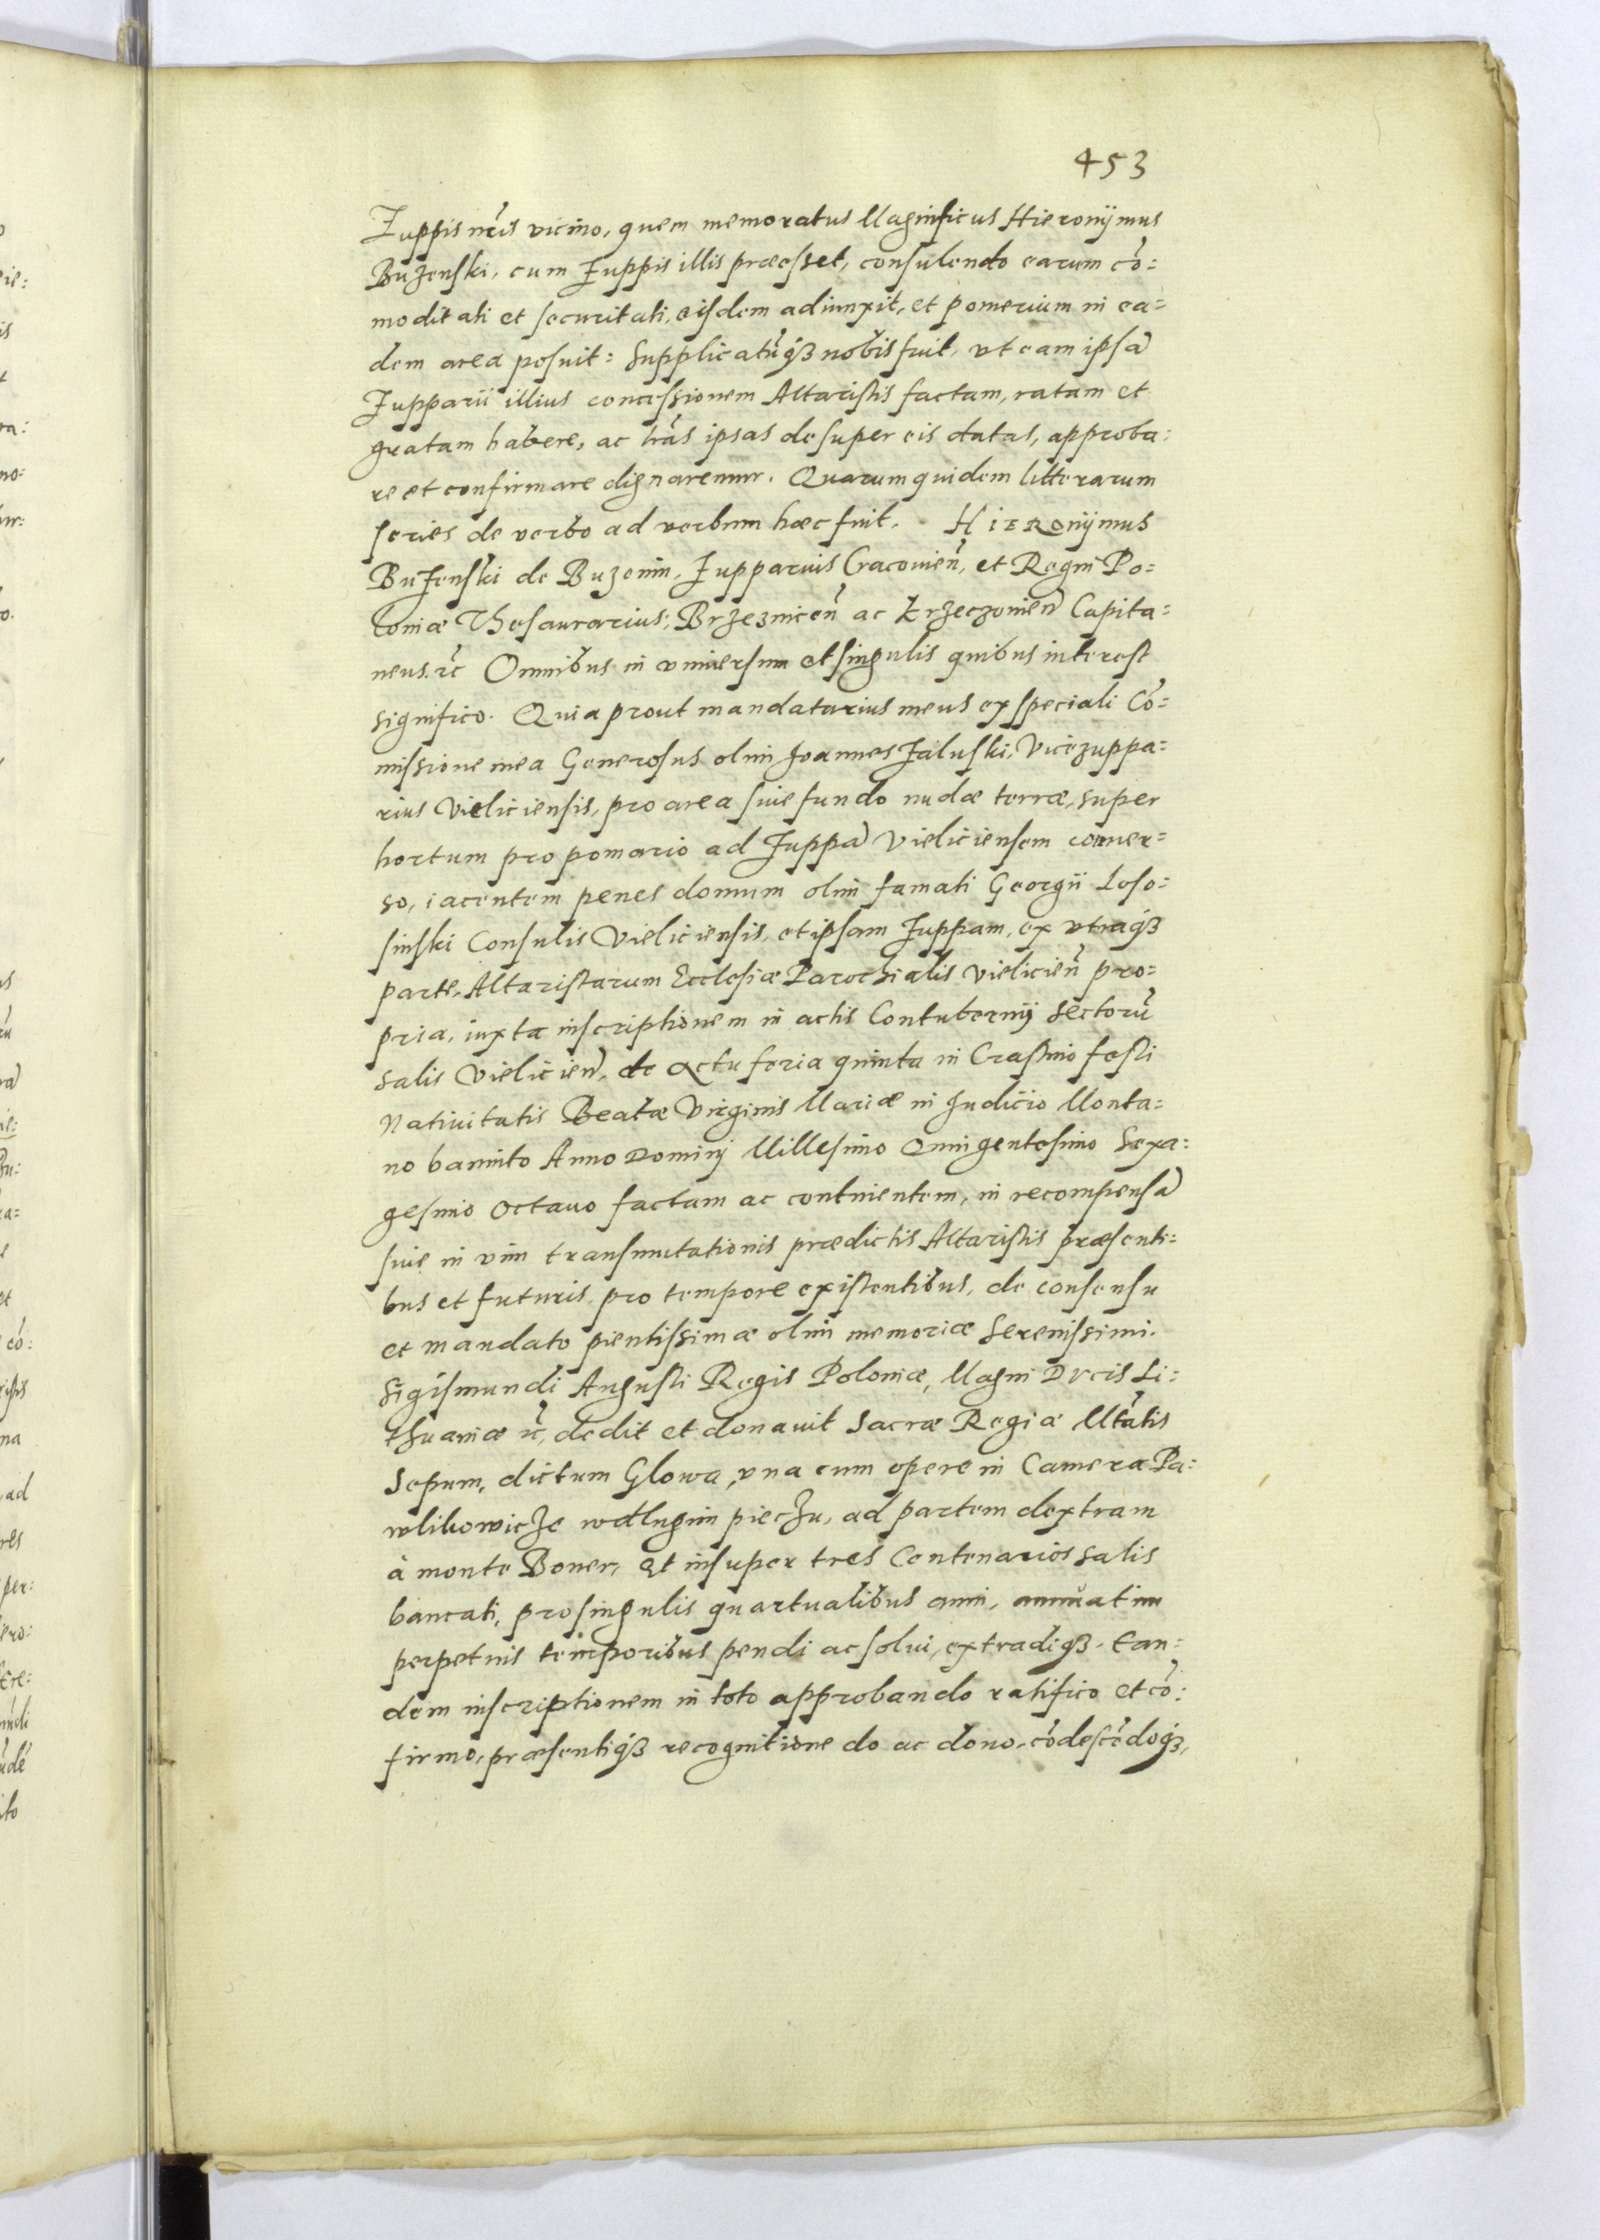 453
Zuppis nr̃is vicino, quem memoratus Magnificus Hieronÿmus
Buzenski, cum Zuppis illis præesset, consulendo earum cõ=
moditati et securitati, eisdem adiunxit, et pomerium in ea=
dem area posuit: Supplicatũq3 nobis fuit, vt eam ipsã
Zupparii illius concessionem Altaristis factam, ratam et
gratam habere, ac lr̃as ipsas desuper eis datas, approba=
re et confirmare dignaremur. Quarum quidem litterarum
series de verbo ad verbum hæc fuit. HIERonÿmus
Buzenski de Buzenin, Zupparius Cracovien̄, et Regni Po=
loniæ Thesaurarius, Brzeznicen̄ ac Krzeczovien̄ Capita=
neus. ec̃ Omnibus in vniuersum et singulis quibus interest
significo. Quia prout mandatarius meus ex speciali Cõ=
missione mea Generosus olim Joannes Zaluski, Vicezuppa=
rius Vieliciensis, pro area siue fundo nudæ terræ, super
hortum pro pomario ad Zuppã Vieliciensem conuer=
so, iacentem penes domum olim famati Georgii Loso=
sinski Consulis Vieliciensis, et ipsam Zuppam, ex vtraq3
parte, Altaristarum Ecclesiæ Parochialis Vielicien̄ pro=
pria, iuxta inscriptionem in actis Contubernij Sectorũ
salis Vielicien̄, de actu feria quinta in Crastino festi
Nativitatis Beatæ Virginis Mariæ in Judicio Monta=
no bannito Anno Dominj Millesimo Quingentesimo Sexa=
gesimo octauo factam ac continentem, in recompensã
siue in vim transmutationis prædictis Altaristis præsenti=
bus et futuris, pro tempore existentibus, de consensu
et mandato pientissimæ olim memoriæ Serenissimi.
Sigismundi Augusti Regis Poloniæ, Magni Dvcis Li=
thuaniæ ec̃, dedit et donauit Sacræ Regiæ Mtãtis
Sepum, dictum Glowa, vna cum opere in Camera Pa=
wlikowicze wdlugim pieczu, ad partem dextram
à monte Boner, et insuper tres Centenarios salis
bancati, pro singulis quartualibus anni, annuatim
perpetuis temporibus pendi ac solui, extradiq3. Ean=
dem inscriptionem in toto approbando ratifico et cõ=
firmo, præsentiq3 recognitione do ac dono, cõdescẽdoq3,